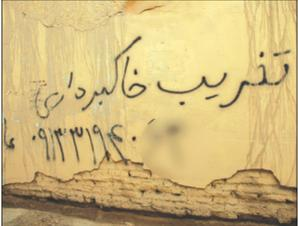 تخریب خاکبرداری
۰۹۱۳۳۱۹۴۰